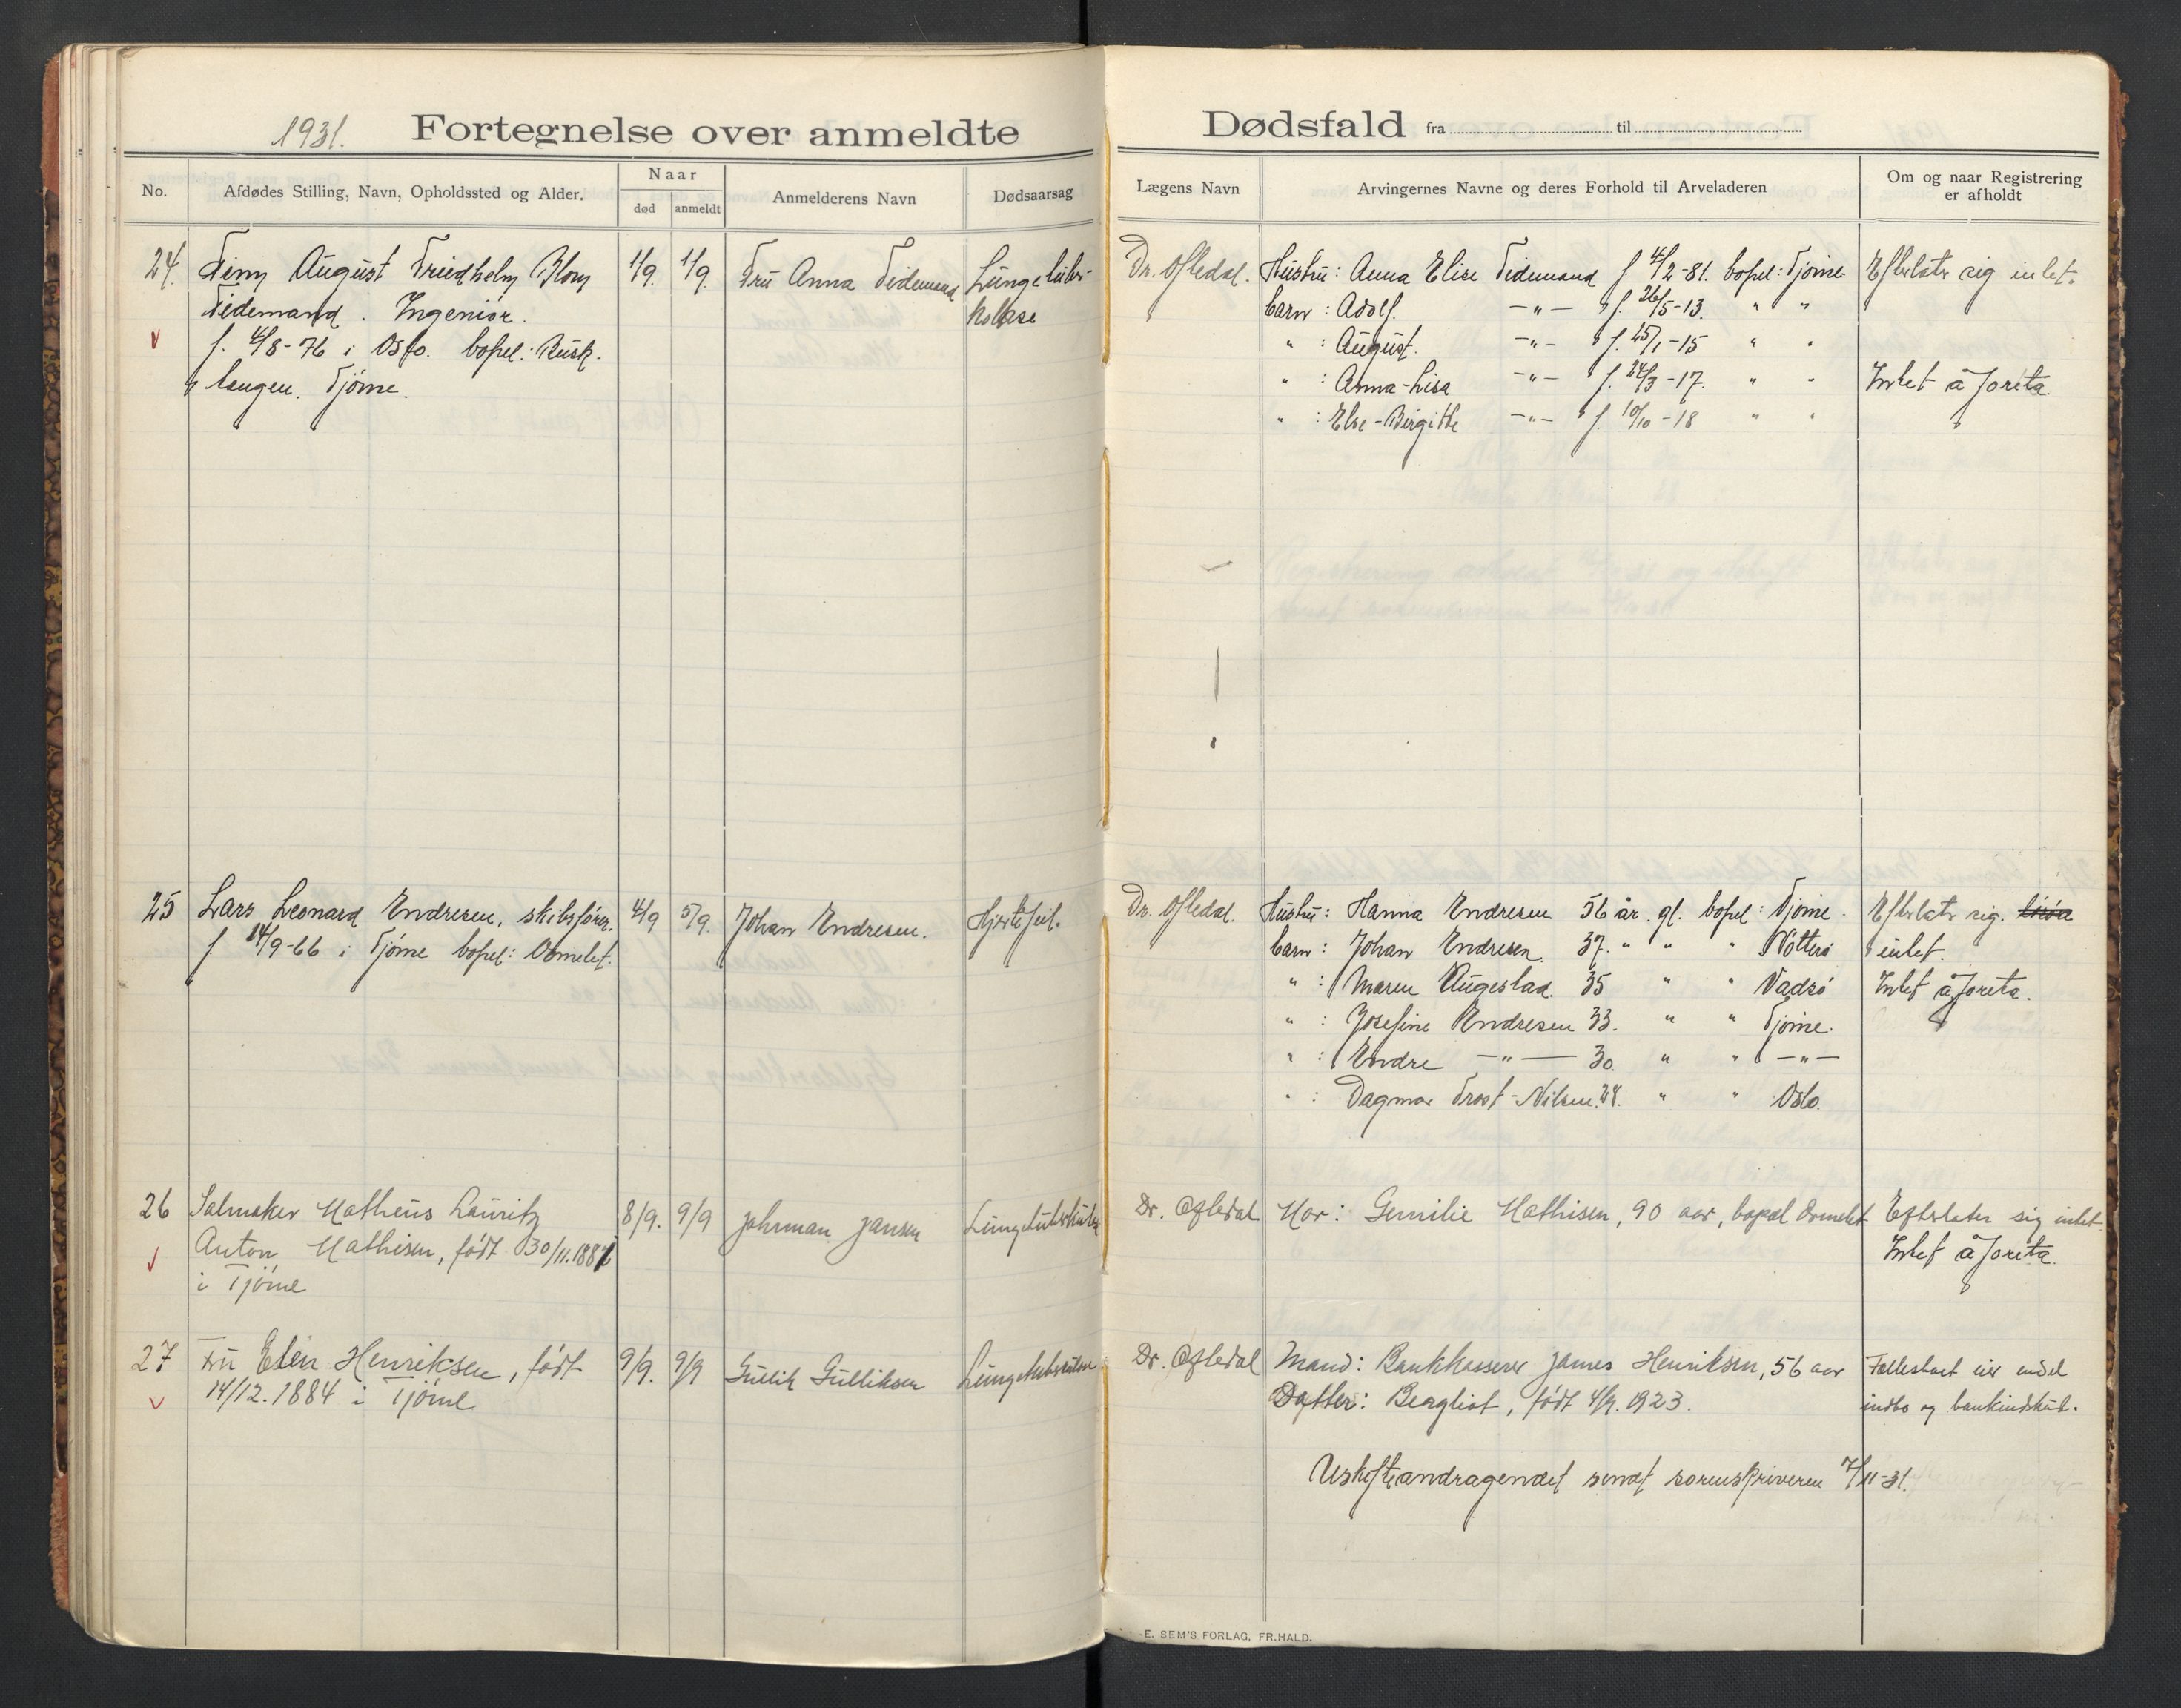 1931. Fortegnelse over anmeldte Dødsfald fra til
No. Afdødes Stilling, Navn, Opholdssted og Alder. Naar død anmeldt Anmelderens Navn Dødsaarsag Lægens Navn Arvingernes Navne og deres Forhold til Arveladeren Om og naar Registrering er afholdt
24. August Friedhelm Blom 1/9. 1/9. Fru Anna Tidemand Lungetuber-
Tidemand. Ingeniør. kolose
f. /8-76 i Oslo. bopel: Rusk.
haugen. Tjøme.
Dr. Ofledal. Hustru: Anna Elise Tidemand f. /2-81. bopel: Tjøme Efterlater sig intet.
barn: Adolf. -"- f. 26/5-13. " "
" : August. -"- f. 25/1-15 " "
" : Anna-Lisa -"- f. 24/3-17. " " Intet å foreta.
" : Else-Birgithe -"- f. 10/10-18 " "
25 Lars Leonard Endresen, skibsfører. 4/9 5/9. Johan Endresen. Hjertefeil.
f. 14/9-66 i Tjøme bopel: Ormelet.
Dr. Ofledal. Hustru: Hanna Endresen 56 år. gl. bopel: Tjøme. Efterlater sig.
barn: Johan Endresen. 37. " " " Nøtterø intet.
" : Maren Augestad. 35 " " Vadsø Intet å foreta.
" : Josefine Endresen 33. " " Tjøme.
" : Endre -"- 30. " " -"-
" : Dagmar Trost-Nilsen. 28. " " Oslo.
26 Salmaker Matheus Lauritz 8/9. 9/9 Johrman Jansen Lungetuberkulos
Anton Mathisen, født 30/11.188
i Tjøme
Dr. Ofledal Mor: Gemilie Mathisen, 90 aar, bopæl Ormelet Efterlater sig intet
Intet å foreta.
27 Fru Elen Henriksen, født 9/9. 9/9 Gullik Gulliksen Lungetuberkulose
14/12.1884 i Tjøme
Dr. Ofledal Mand: Bankkasserer James Henriksen, 56 aar Fællesboet eier endel
Datter: Bergliot, født 4/9. 1923. indbo og bankindskud.
Uskifteandragendet sendt sorenskriveren 7/11-31.
E. SEM'S FORLAG, FR.HALD.